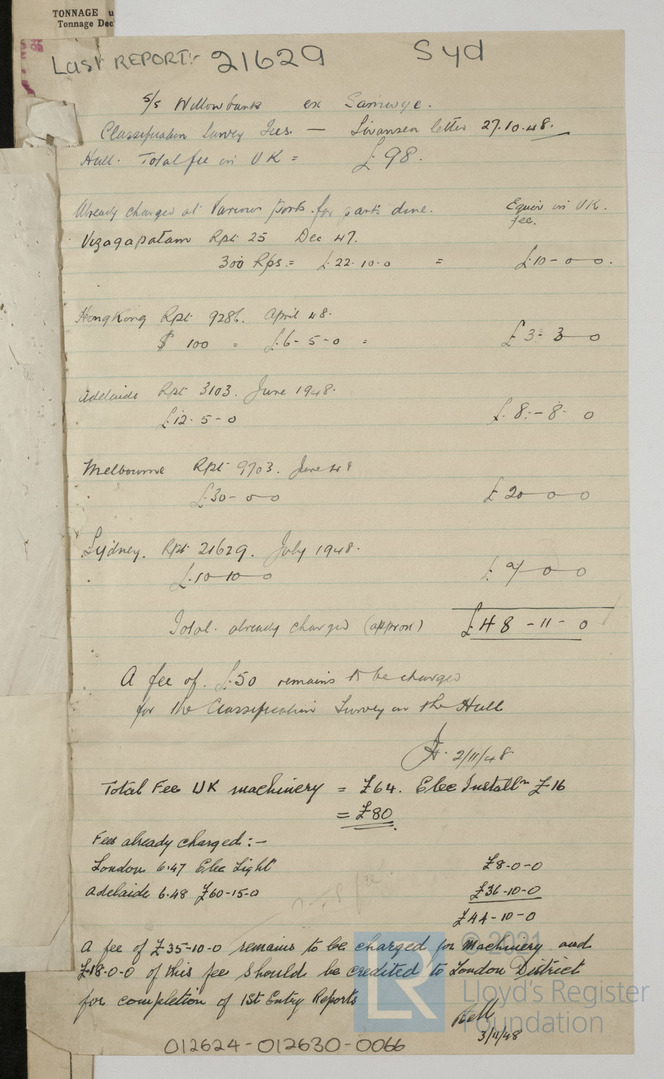 TONNAGE u
Tonnage Dec
Last REPORT:- 21629 Syd
S/S Willowbank ex Samwye.
Classification Survey Fees. — Swansea letter 27.10.48.
Hull. Total fee in UK = £98.
Already charged at Various ports for parts done. Equiv in UK.
fee.
Vizagapatam Rpt 25 Dec 47.
300 Rps = £22-10-0 = £10-0-0.
Hong Kong Rpt 9286. April 48.
$ 100 = £6-5-0 = £3-3-0
Adelaide Rpt 3103. June 1948.
£12-5-0 £8-8-0
Melbourne Rpt 9703. June 48
£30-0-0 £20-0-0
Sydney. Rpt 21629. July 1948.
£10-10-0 £7-0-0
Total already charged (approx) £48-11-0
A fee of £50 remains to be charged
for the Classification Survey on the Hull
2/11/48.
Total Fee UK machinery = £64. Elec Installn £16
= £80.
Fees already charged:-
London 6.47 Elec Light £8-0-0
Adelaide 6.48 £60-15-0 £36-10-0
£44-10-0
A fee of £35-10-0 remains to be charged for Machinery and
£18-0-0 of this fee should be credited to London District
for completion of 1st Entry Reports
3/11/48
© 2021
LR Lloyd's Register
Foundation
012624-012630-0066